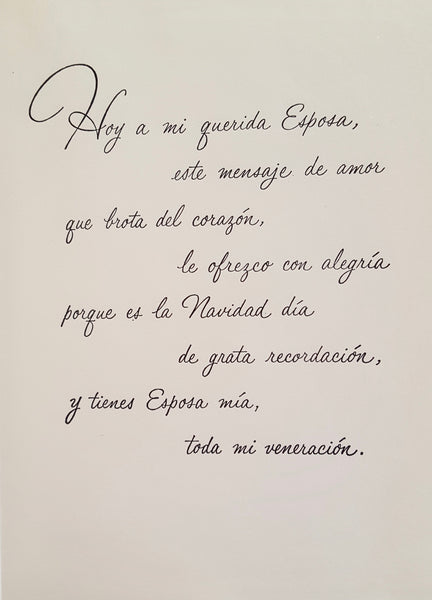 Hoy a mi querida Esposa,
este mensaje de amor
que brota del corazón,
le ofrezco con alegría
porque es la Navidad día
de grata recordación,
y tienes Esposa mía,
toda mi veneración.